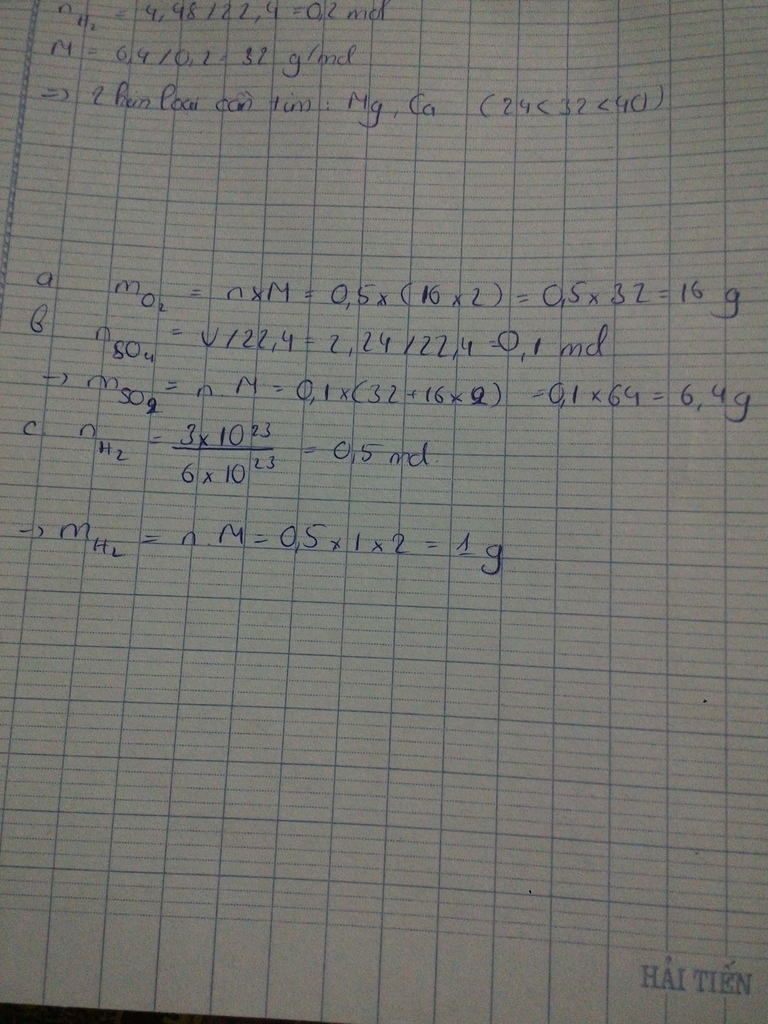 n H₂ = 4,48 / 22,4 = 0,2 mol
M = 6,4 / 0,2 = 32 g/mol
=> 2 kim loại cần tìm : Mg, Ca (24 < 32 < 40)
a m O₂ = n x M = 0,5 x (16 x 2) = 0,5 x 32 = 16 g
b n SO₄ = V / 22,4 = 2,24 / 22,4 = 0,1 mol
-> m SO₂ = n . M = 0,1 x (32 + 16 x 2) = 0,1 x 64 = 6,4 g
c n H₂ = 3 x 10²³ / 6 x 10²³ = 0,5 mol
-> m H₂ = n . M = 0,5 x 1 x 2 = 1 g
HẢI TIẾN